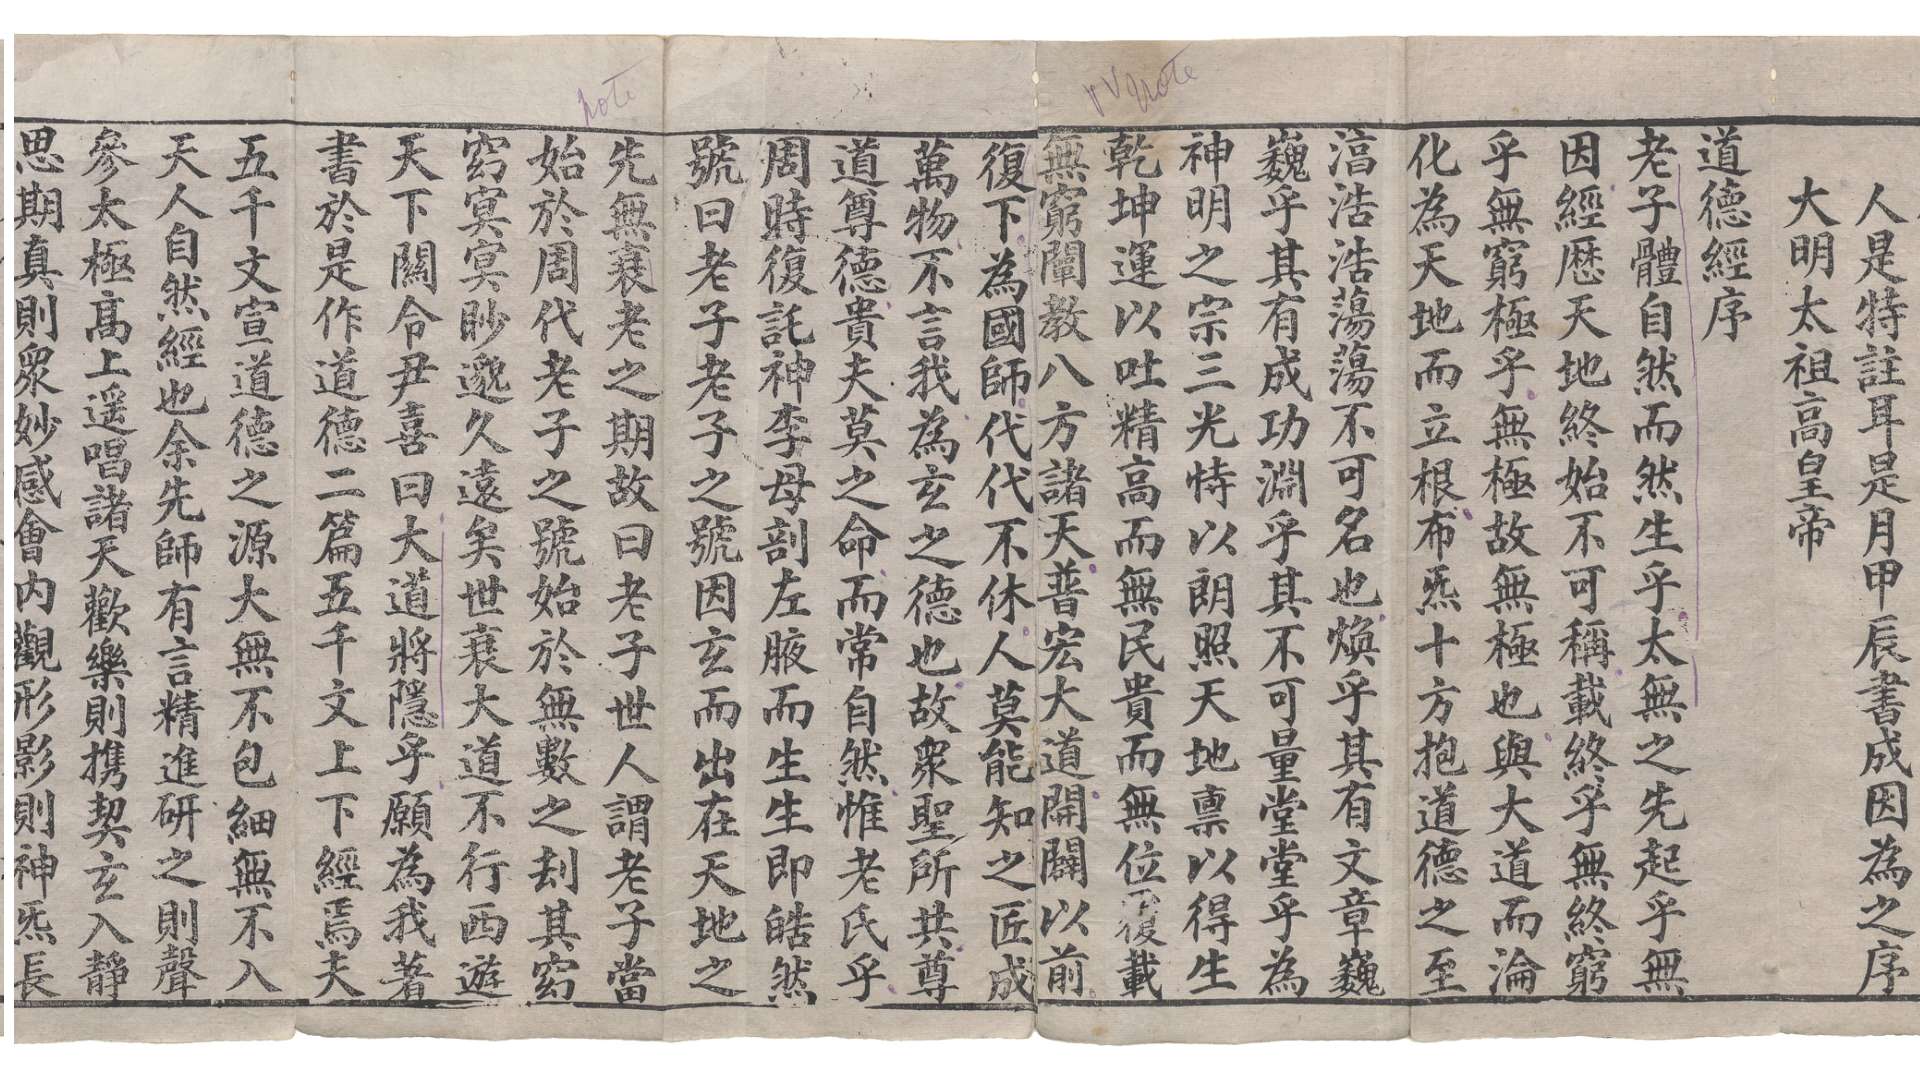 人是特註耳是月甲辰書成因為之序
大明太祖高皇帝
道德經序
老子體自然而然生乎太無之先起乎無
因經歷天地終始不可稱載終乎無終窮
乎無窮極乎無極故無極也與大道而淪
化為天地而立根布炁十方抱道德之至
淳浩浩蕩蕩不可名也煥乎其有文章巍
巍乎其有成功淵乎其不可量堂堂乎為
神明之宗三光恃以朗照天地稟以得生
乾坤運以吐精高而無民貴而無位覆載
無窮闡教八方諸天普宏大道開闢以前
復下為國師代代不休人莫能知之匠成
萬物不言我為玄之德也故衆聖所共尊
道尊德貴夫莫之命而常自然惟老氏乎
周時復託神李母剖左腋而生生即皓然
號曰老子老子之號因玄而出在天地之
先無衰老之期故曰老子世人謂老子當
始於周代老子之號始於無數之刦其窈
窈冥冥眇邈久遠矣世衰大道不行西遊
天下關令尹喜曰大道將隱乎願為我著
書於是作道德二篇五千文上下經焉夫
五千文宣道德之源大無不包細無不入
天人自然經也余先師有言精進研之則聲
參太極高上遥唱諸天歡樂則携契玄入靜
思期真則衆妙感會內觀形影則神炁長
note
note